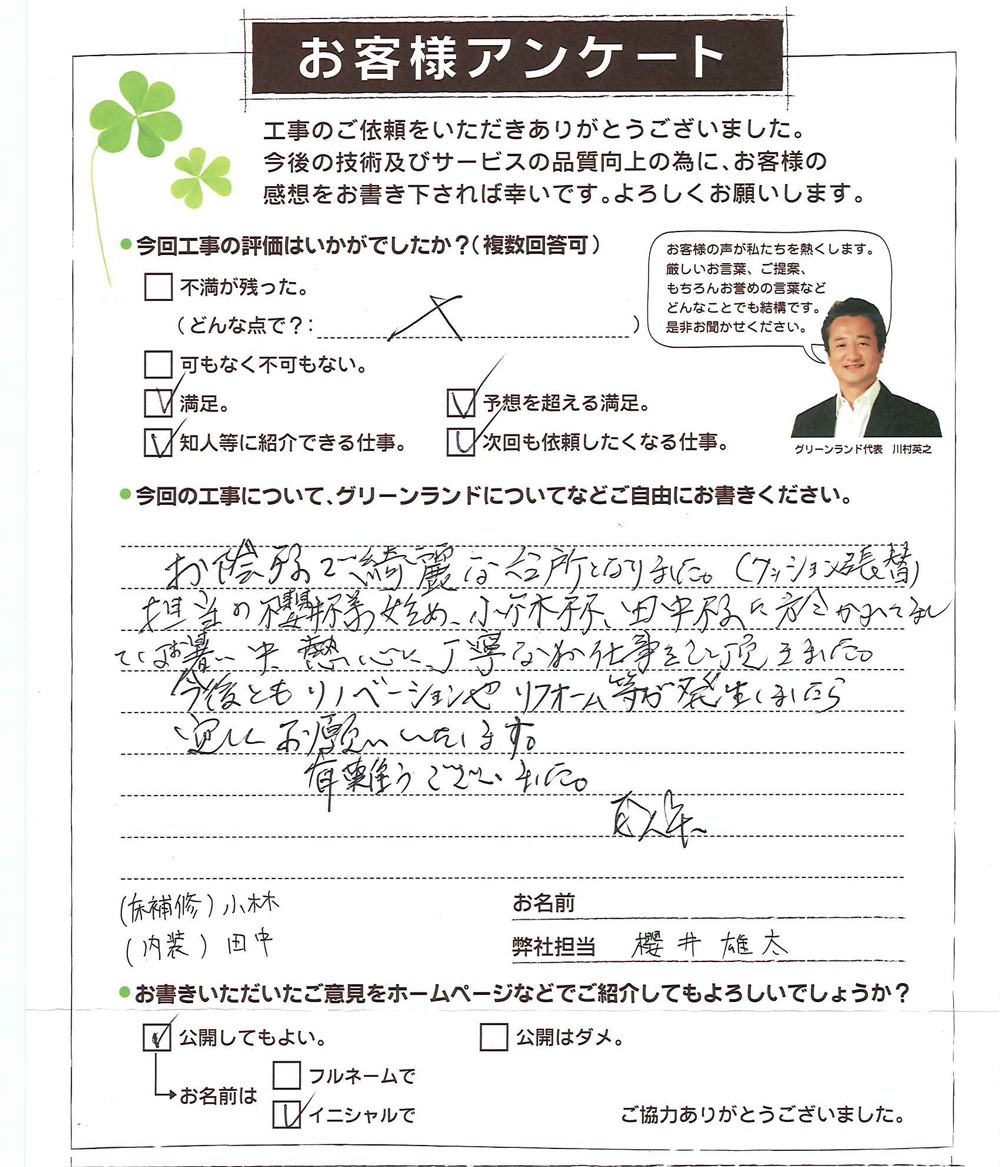 お客様アンケート
工事のご依頼をいただきありがとうございました。
今後の技術及びサービスの品質向上の為に、お客様の
感想をお書き下されば幸いです。よろしくお願いします。
今回工事の評価はいかがでしたか?(複数回答可)
不満が残った。
(どんな点で?: )
可もなく不可もない。
満足。
予想を超える満足。
知人等に紹介できる仕事。
次回も依頼したくなる仕事。
お客様の声が私たちを熱くします。
厳しいお言葉、ご提案、
もちろんお誉めの言葉など
どんなことでも結構です。
是非お聞かせください。
グリーンランド代表 川村英之
今回の工事について、グリーンランドについてなどご自由にお書きください。
お陰様で綺麗な台所となりました。(クッション張替)
担当の櫻井様始め、小林様、田中様に於かれまし
てはお暑い中、熱心に、丁寧なお仕事をして頂きました。
今後ともリノベーションやリフォーム等が発生しましたら
宜しくお願いいたします。
有難うございました。
(床補修)小林
(内装)田中
お名前
弊社担当 櫻井雄太
お書きいただいたご意見をホームページなどでご紹介してもよろしいでしょうか?
公開してもよい。
公開はダメ。
お名前は
フルネームで
イニシャルで
ご協力ありがとうございました。